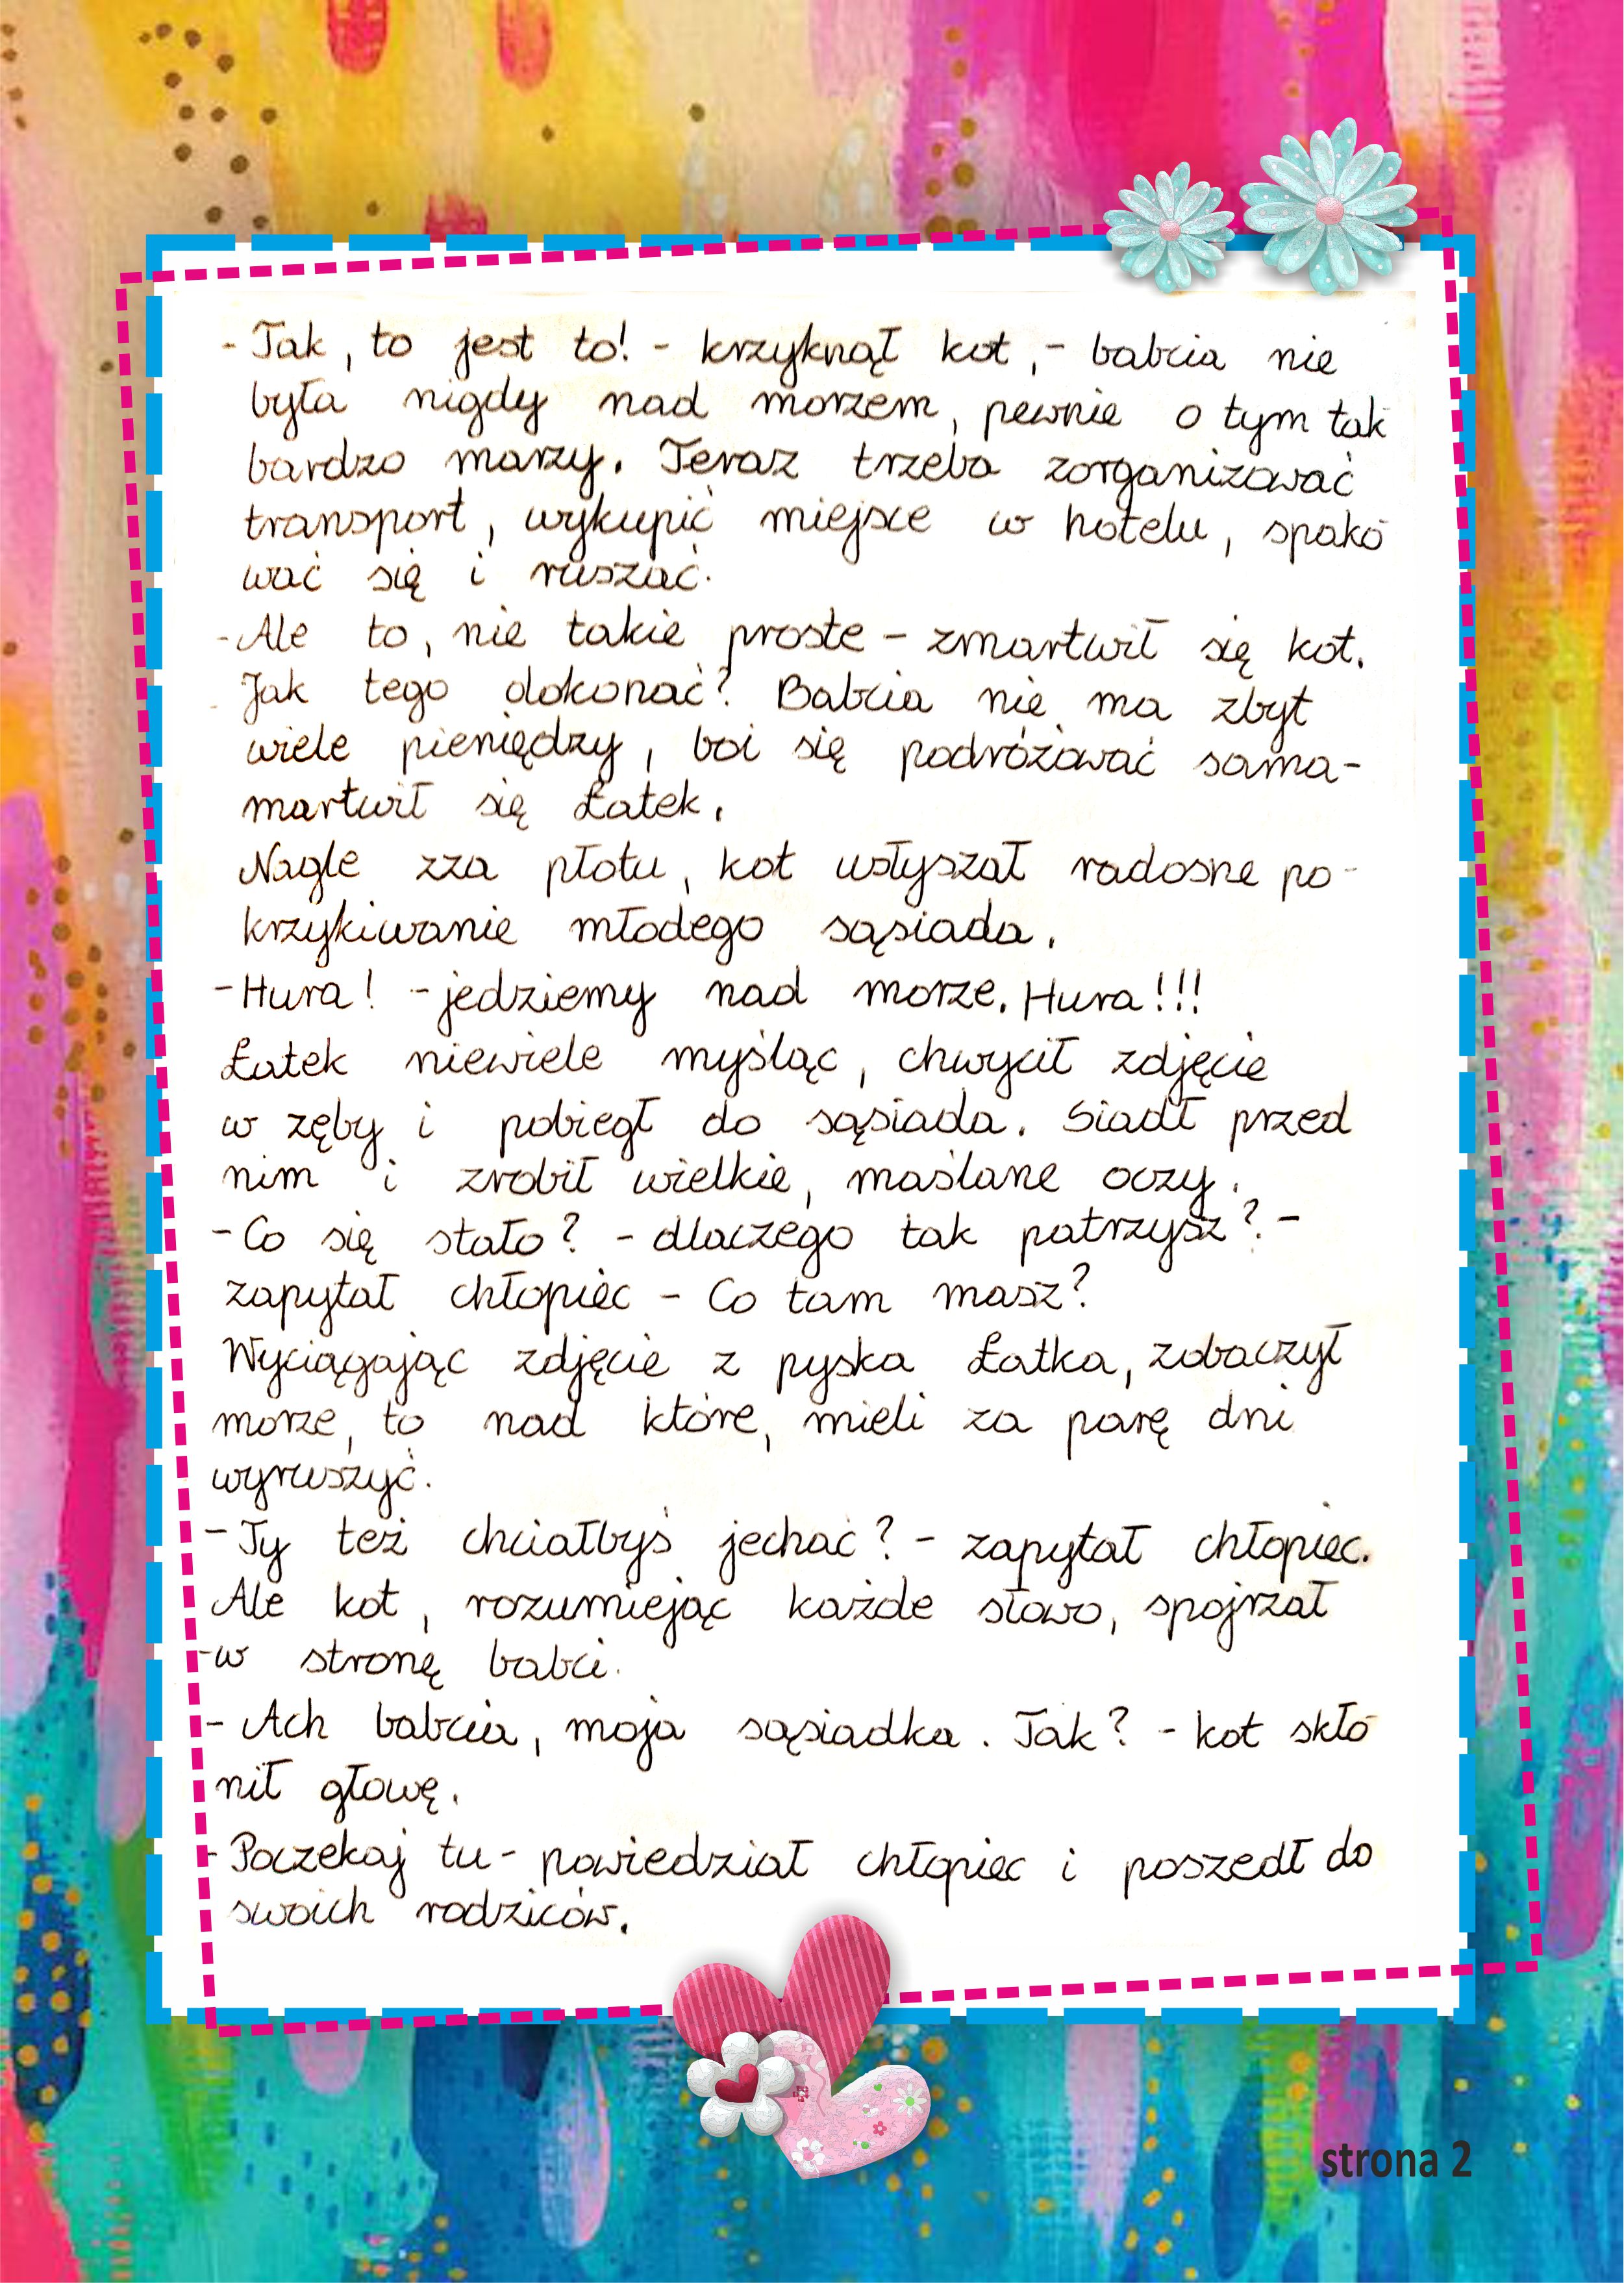 - Tak, to jest to! - krzyknął kot, - babcia nie
była nigdy nad morzem, pewnie o tym tak
bardzo marzy. Teraz trzeba zorganizować
transport, wykupić miejsce w hotelu, spako
wać się i ruszać.
- Ale to, nie takie proste - zmartwił się kot.
Jak tego dokonać? Babcia nie ma zbyt
wiele pieniędzy, boi się podróżować sama -
martwił się Łatek.
Nagle zza płotu, kot usłyszał radosne po-
krzykiwanie młodego sąsiada.
- Hura! - jedziemy nad morze. Hura!!!
Łatek niewiele myśląc, chwycił zdjęcie
w zęby i pobiegł do sąsiada. Siadł przed
nim i zrobił wielkie, maślane oczy.
- Co się stało? - dlaczego tak patrzysz? -
zapytał chłopiec - Co tam masz?
Wyciągając zdjęcie z pyska Łatka, zobaczył
morze, to nad które, mieli za parę dni
wyruszyć.
- Ty też chciałbyś jechać? - zapytał chłopiec.
Ale kot, rozumiejąc każde słowo, spojrzał
-w stronę babci.
- Ach babcia, moja sąsiadka. Tak? - kot skło
nił głowę.
- Poczekaj tu - powiedział chłopiec i poszedł do
swoich rodziców.
strona 2